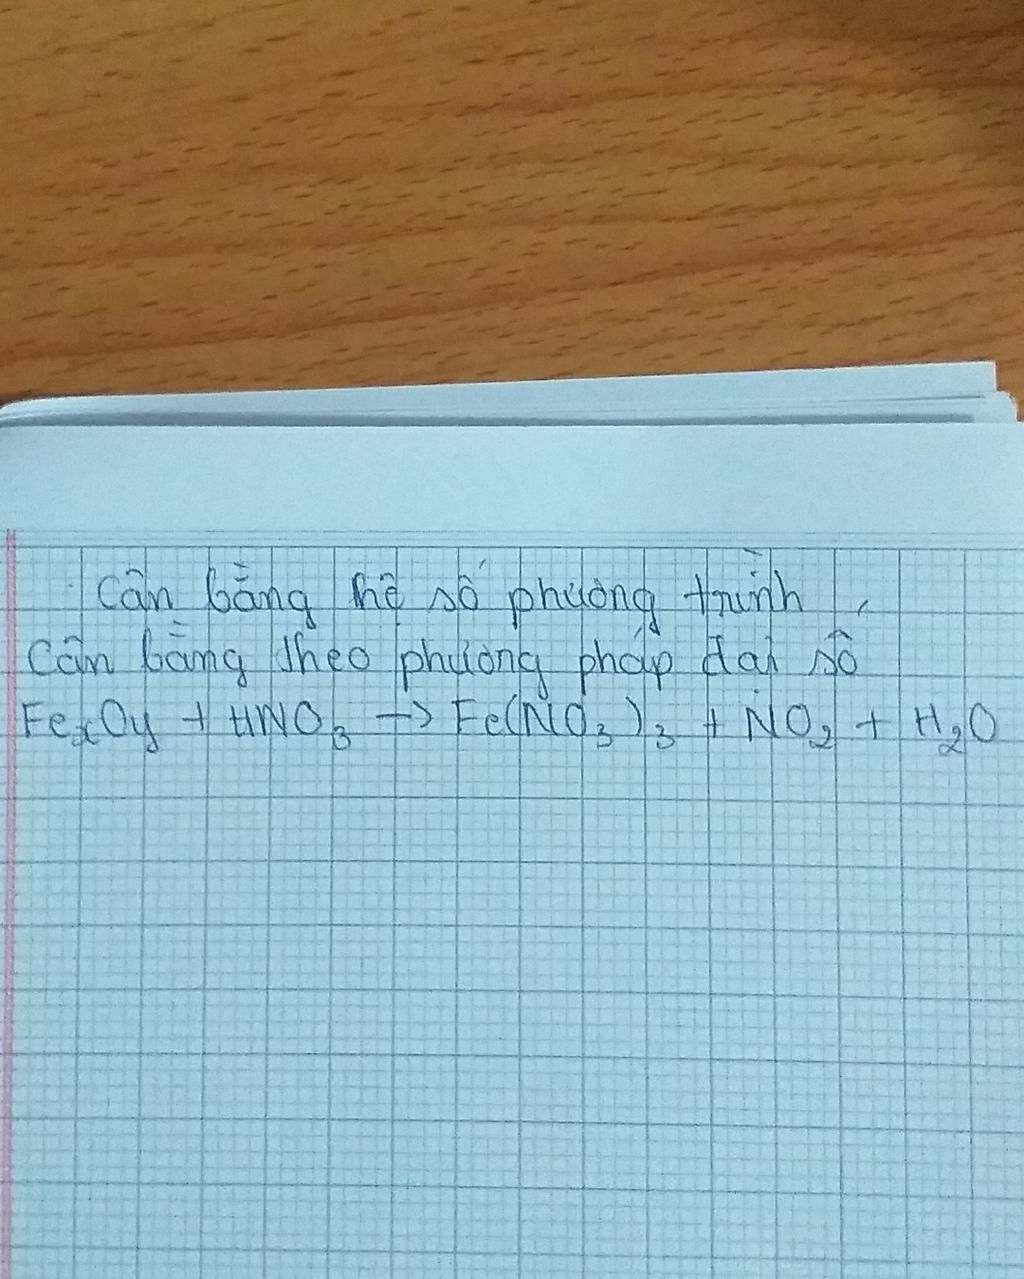 Cân bằng hệ số phương trình,
Cân bằng theo phương pháp đại số
FexOy + HNO3 → Fe(NO3)3 + NO2 + H2O